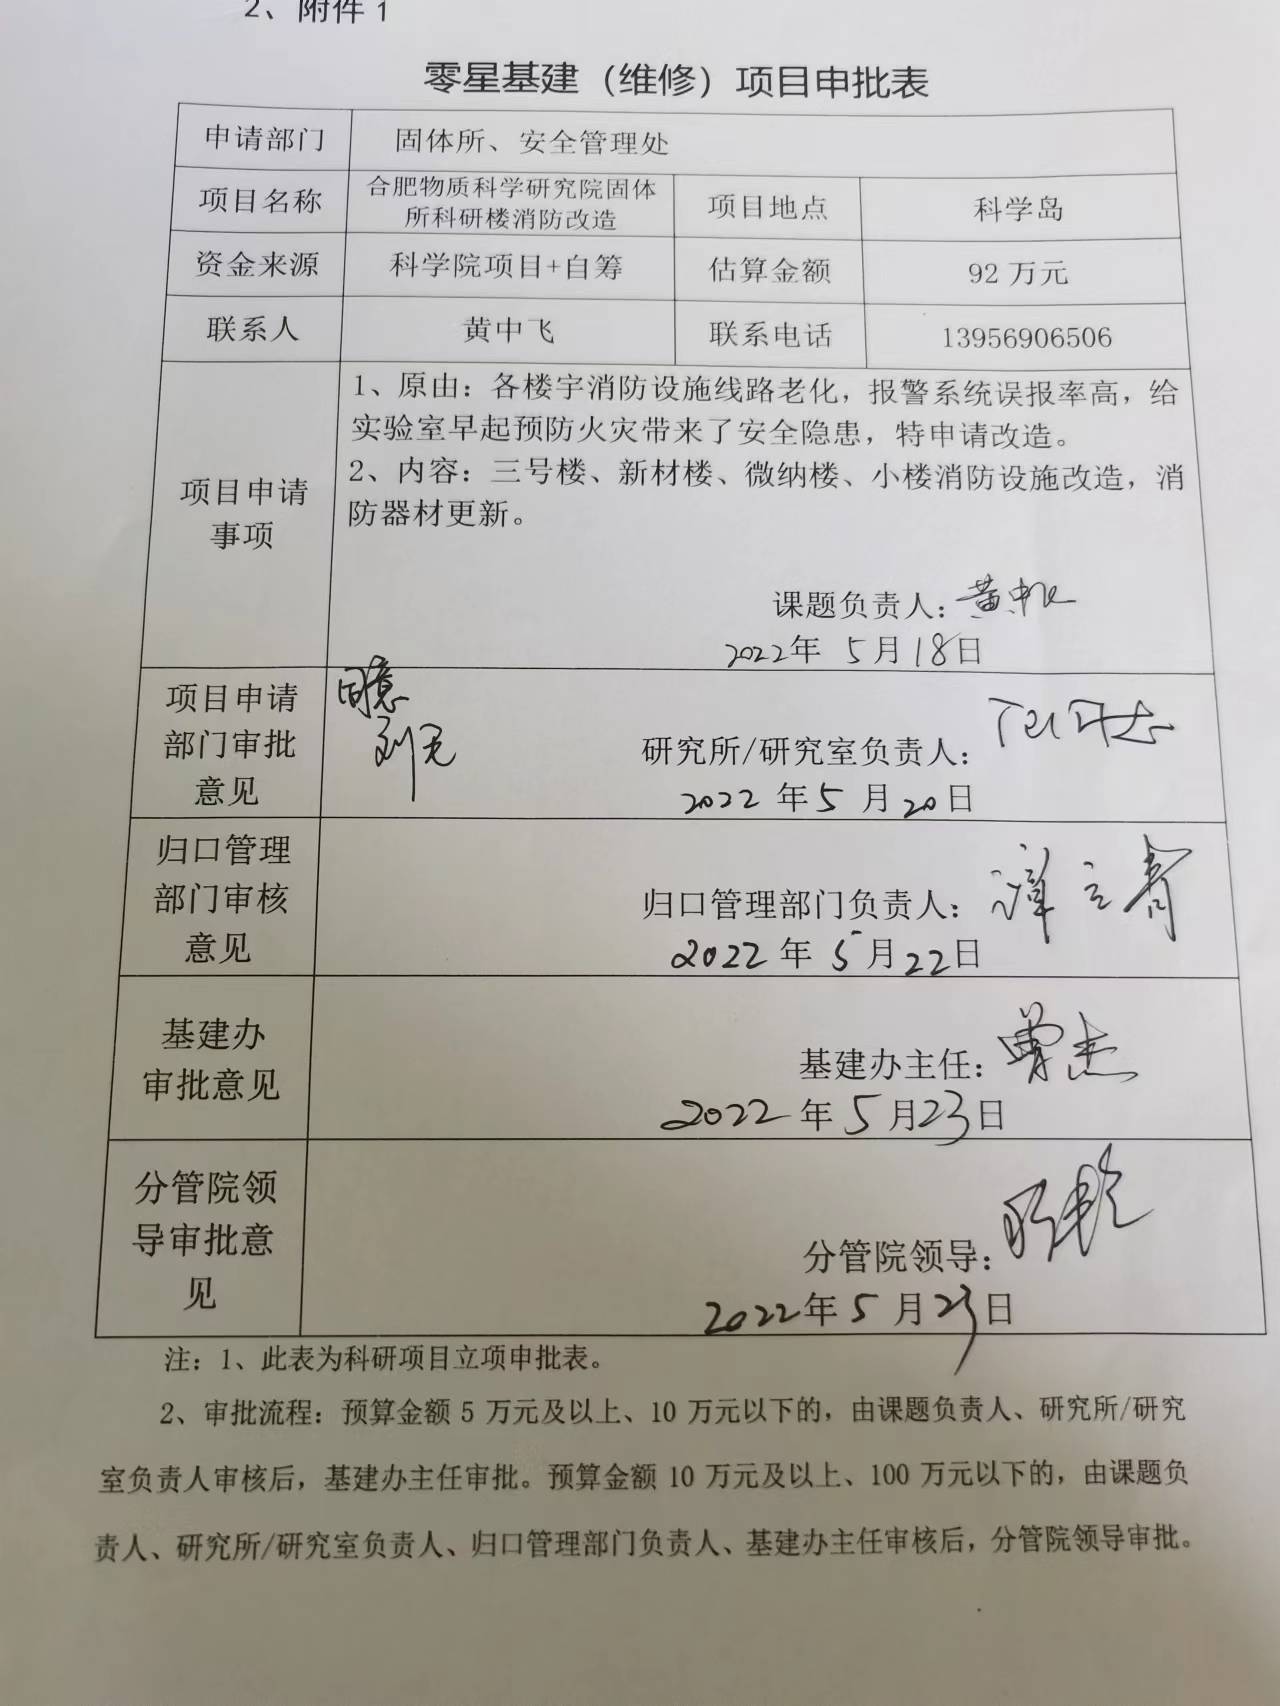 2、附件1
零星基建（维修）项目申批表
申请部门 固体所、安全管理处
项目名称 合肥物质科学研究院固体
所科研楼消防改造 项目地点 科学岛
资金来源 科学院项目+自筹 估算金额 92万元
联系人 黄中飞 联系电话 13956906506
1、原由：各楼宇消防设施线路老化，报警系统误报率高，给
实验室早起预防火灾带来了安全隐患，特申请改造。
2、内容：三号楼、新材楼、微纳楼、小楼消防设施改造，消
防器材更新。
项目申请
事项
课题负责人：黄中飞
2022年 5月18日
项目申请
部门审批
意见
同意
研究所/研究室负责人：
2022 年 5 月 20 日
归口管理
部门审核
意见
归口管理部门负责人：谭立青
2022 年 5 月 22 日
基建办
审批意见
基建办主任：曾杰
2022 年 5 月 23 日
分管院领
导审批意
见
分管院领导：
2022年 5 月 23 日
注：1、此表为科研项目立项申批表。
2、审批流程：预算金额 5 万元及以上、10 万元以下的，由课题负责人、研究所/研究
室负责人审核后，基建办主任审批。预算金额 10 万元及以上、100 万元以下的，由课题负
责人、研究所/研究室负责人、归口管理部门负责人、基建办主任审核后，分管院领导审批。